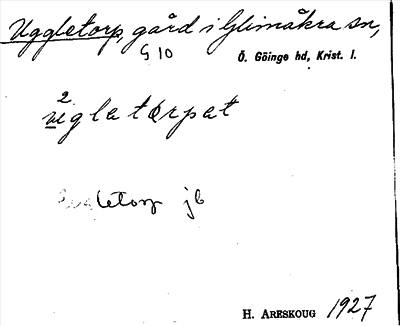 Uggletorp, gård i Glimåkra sn,
G 10
Ö. Göinge hd, Krist. l.
2
letorp jb
H. ARESKOUG 1927